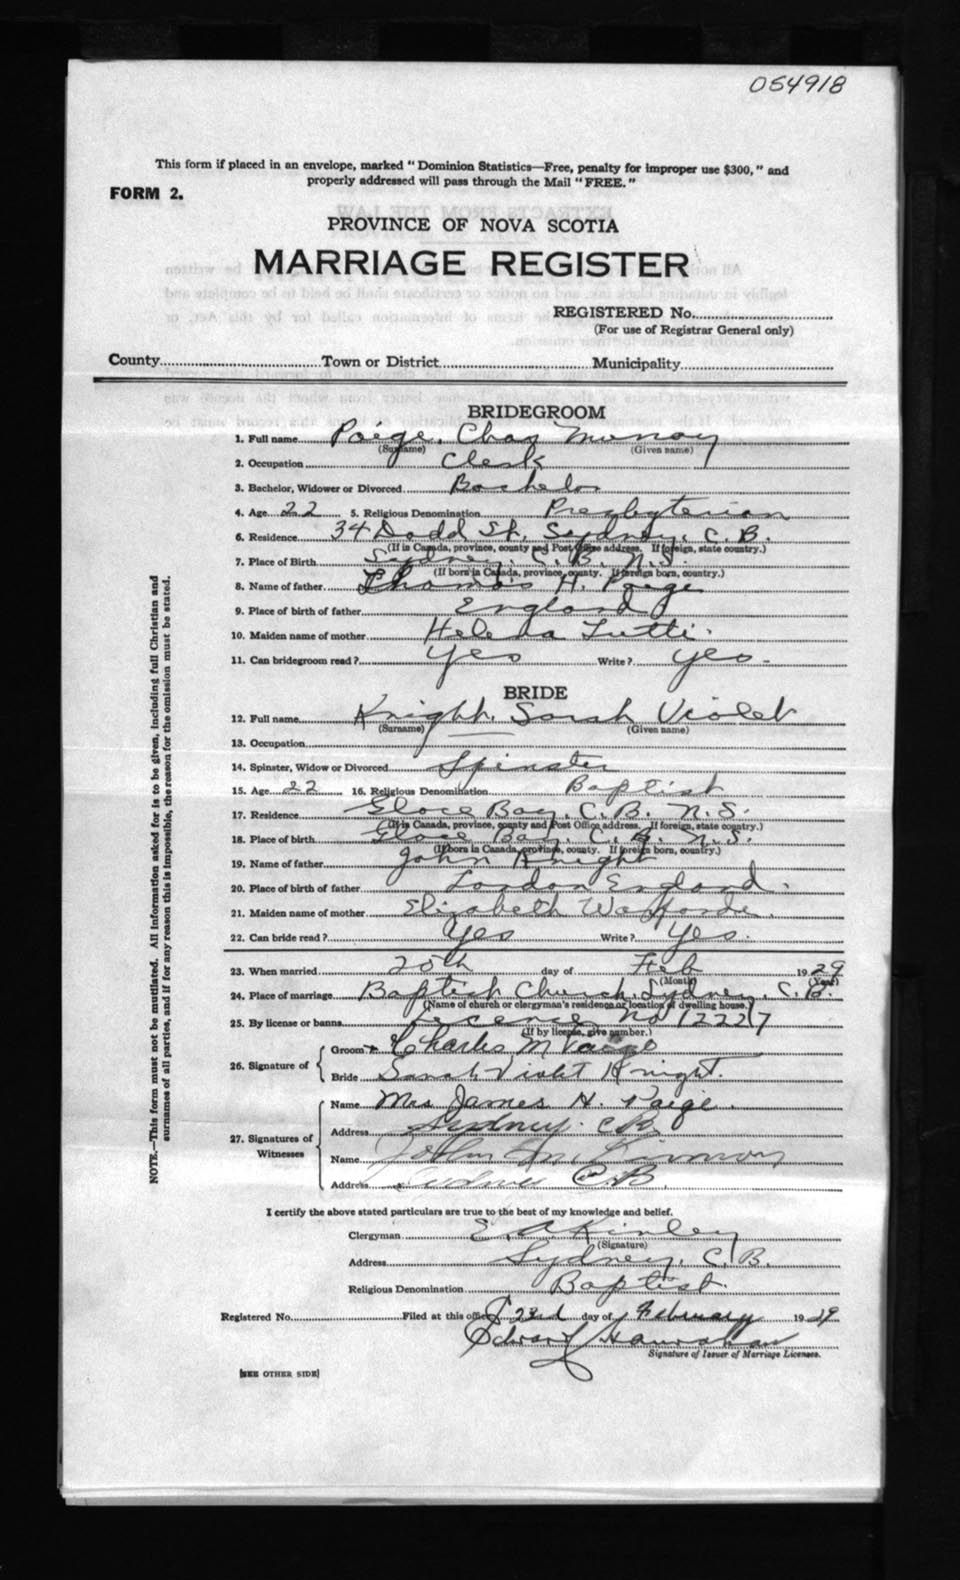 054918
This form if placed in an envelope, marked "Dominion Statistics—Free, penalty for improper use $300," and
properly addressed will pass through the Mail "FREE."
FORM 2.
PROVINCE OF NOVA SCOTIA
MARRIAGE REGISTER
REGISTERED No.
(For use of Registrar General only)
County Town or District Municipality
BRIDEGROOM
1. Full name Paige, Chas Murray
(Surname) (Given name)
2. Occupation Clerk
3. Bachelor, Widower or Divorced Bachelor
4. Age 22 5. Religious Denomination Presbyterian
6. Residence 34 Dodd St. Sydney, C.B.
(If in Canada, province, county and Post Office address. If foreign, state country.)
7. Place of Birth Sydney, C.B. N.S.
(If born in Canada, province, county. If foreign born, country.)
8. Name of father Thomas H. Paige
9. Place of birth of father England
10. Maiden name of mother Helena
11. Can bridegroom read? Yes Write? Yes.
BRIDE
12. Full name Knight, Sarah Violet
(Surname) (Given name)
13. Occupation
14. Spinster, Widow or Divorced Spinster
15. Age 22 16. Religious Denomination Baptist
17. Residence Glace Bay, C.B. N.S.
(If in Canada, province, county and Post Office address. If foreign, state country.)
18. Place of birth Glace Bay, C.B. N.S.
(If born in Canada, province, county. If foreign born, country.)
19. Name of father John Knight
20. Place of birth of father London England.
21. Maiden name of mother Elizabeth
22. Can bride read? Yes Write? Yes.
23. When married 20th day of Feb 1929
(Month) (Year)
24. Place of marriage Baptist Church, Sydney, C.B.
(Name of church or clergyman's residence or location of dwelling house.)
25. By license or banns Licence No 12227
(If by license, give number.)
26. Signature of
Groom Charles M Paige
Bride Sarah Violet Knight.
27. Signatures of
Witnesses
Name Mrs James H. Paige.
Address Sydney. C.B.
Name John McKinnon
Address Sydney C.B.
I certify the above stated particulars are true to the best of my knowledge and belief.
Clergyman E. A Kinley
(Signature)
Address Sydney, C.B.
Religious Denomination Baptist.
Registered No. Filed at this office 23rd day of February 1929
Edward Hanrahan
Signature of Issuer of Marriage Licenses.
[SEE OTHER SIDE]
NOTE.—This form must not be mutilated. All information asked for is to be given, including full Christian and
surnames of all parties, and if for any reason this is impossible, the reason for the omission must be stated.